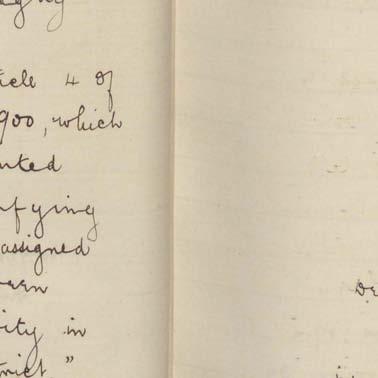 icle 4 of
900, which
nted
fying
assigned
ern
ity in
trict "